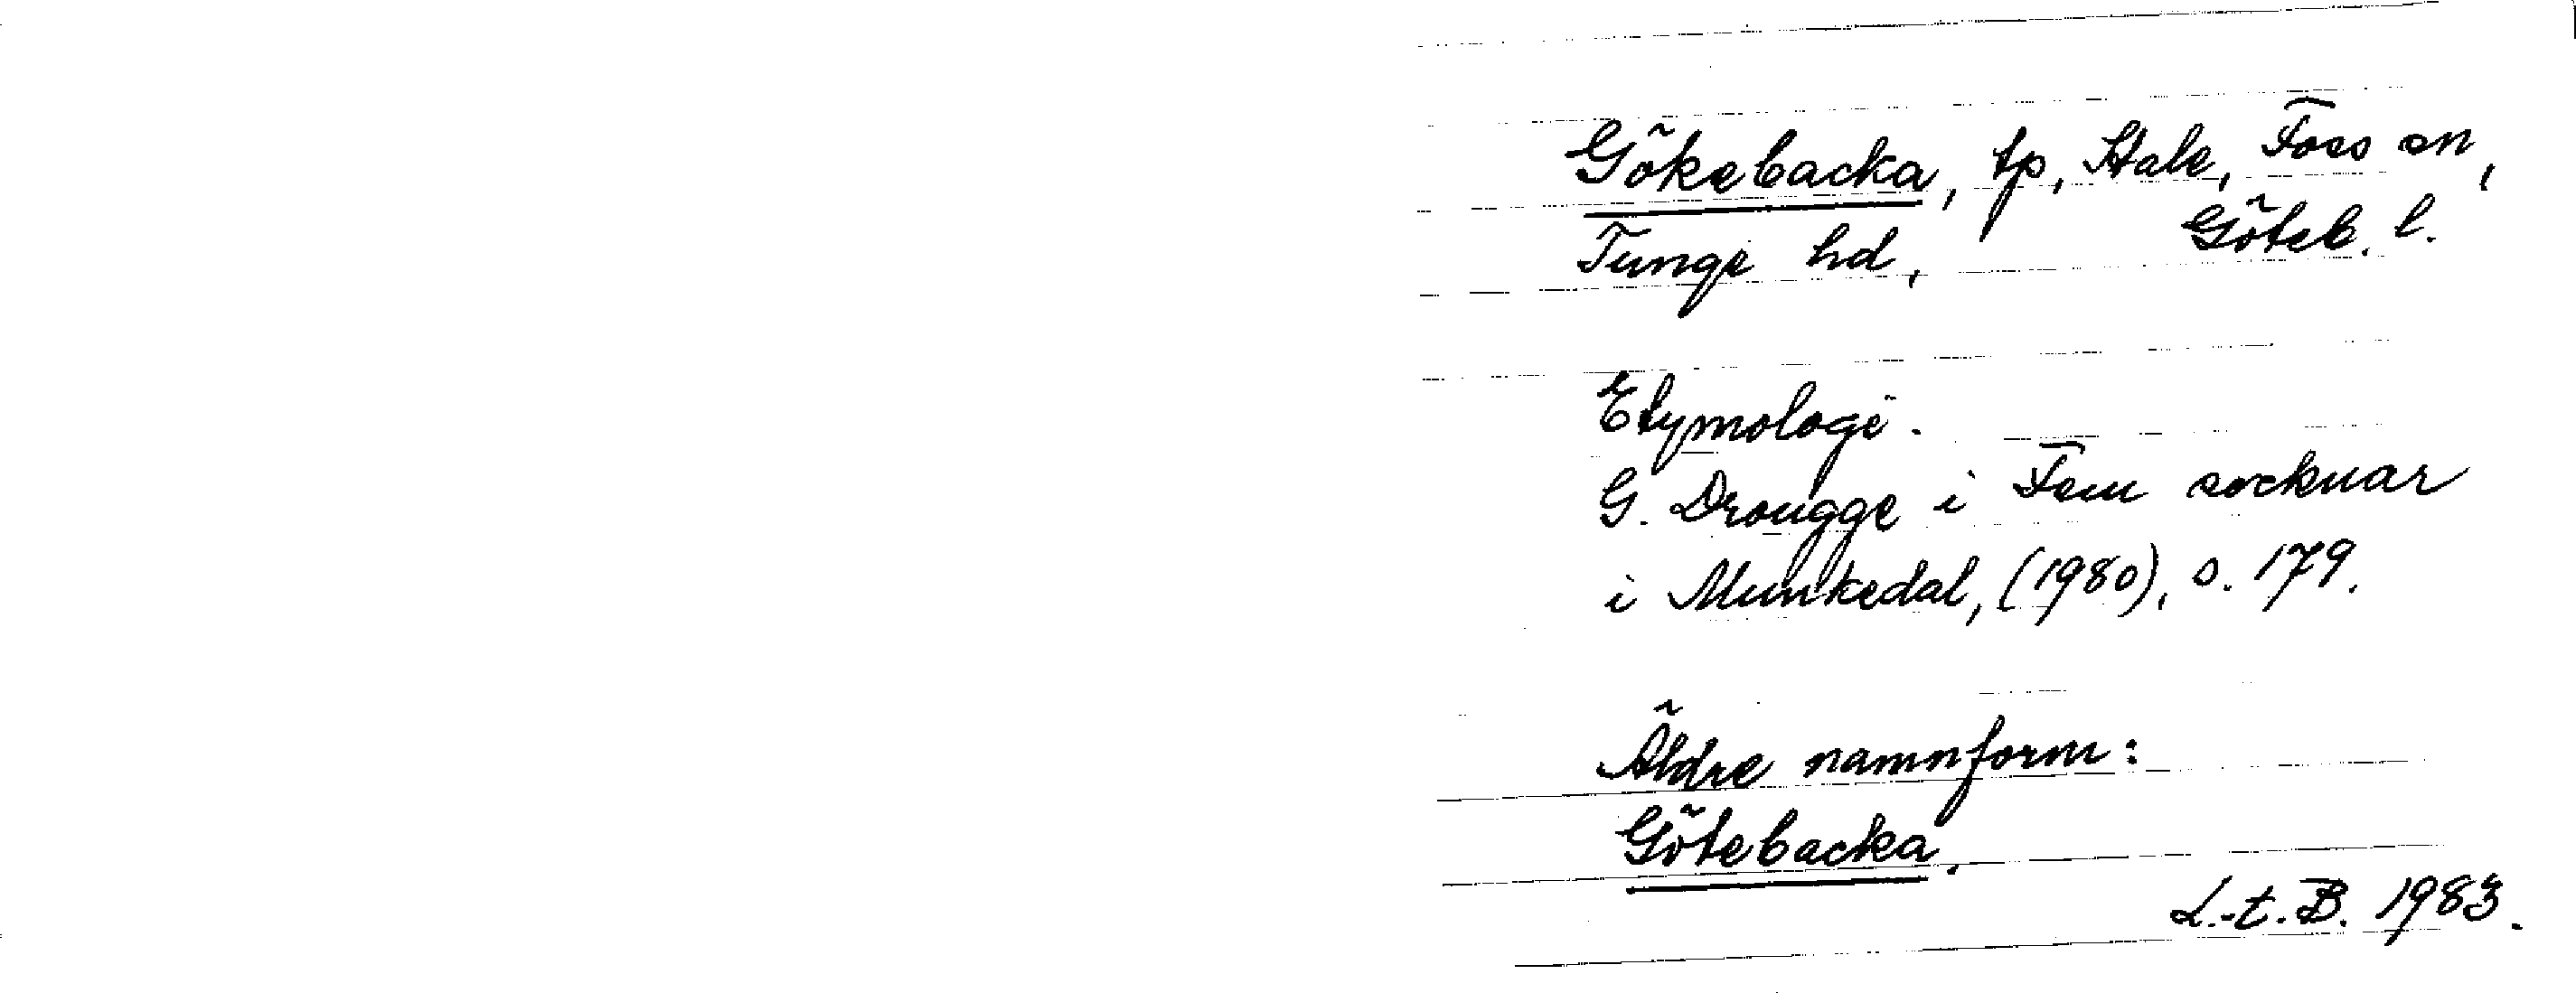 Gökebacka, tp, Stale, Foss sn,
Tunge hd, Göteb. l.
Etymologi.
G. Drougge i Fem socknar
i Munkedal, (1980), s. 179.
Äldre namnform:
Götebacka.
L.-t. B. 1983.